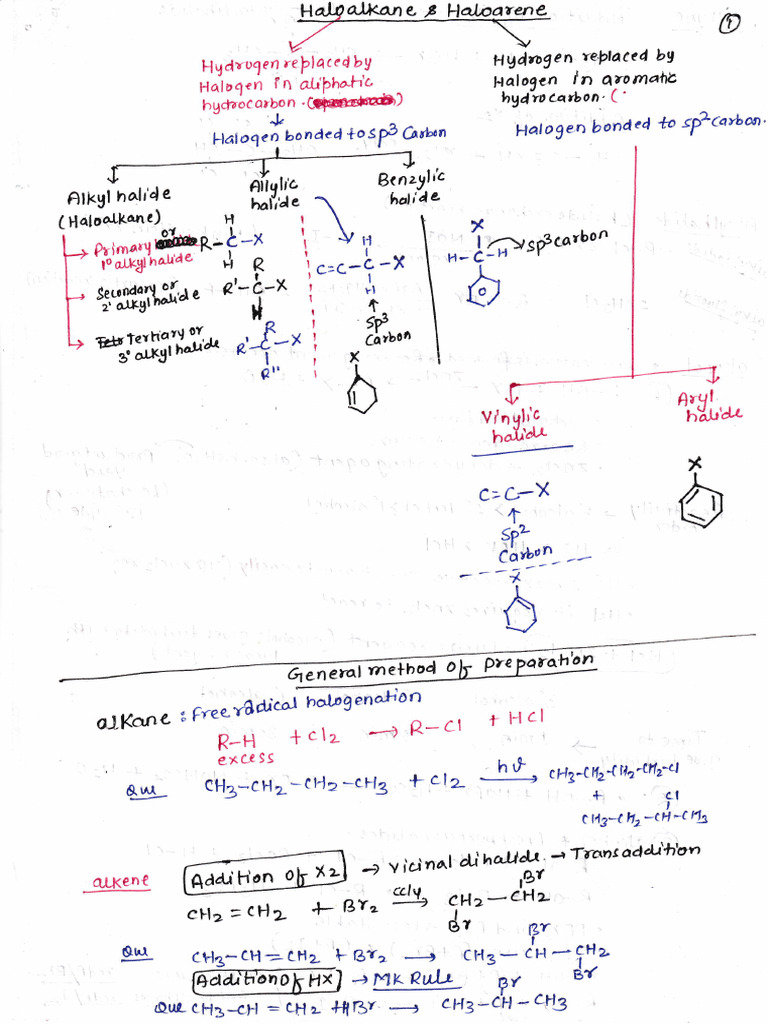 Haloalkane & Haloarene
1
Hydrogen replaced by
Halogen in aliphatic
hydrocarbon.
Hydrogen replaced by
Halogen in aromatic
hydrocarbon. (
Halogen bonded to sp3 Carbon
Halogen bonded to sp2 carbon.
Alkyl halide
(Haloalkane)
Allylic
halide
Benzylic
halide
Primary or
1° alkyl halide
H
R-C-X
H
Secondary or
2° alkyl halide
R
R'-C-X
H
Tertiary or
3° alkyl halide
R
R'-C-X
R"
H
C=C-C-X
H
Sp3
Carbon
X
X
H-C-H
sp3 carbon
Vinylic
halide
Aryl
halide
C=C-X
Sp2
Carbon
X
X
General method of Preparation
alkane : Free radical halogenation
R-H + Cl2 → R-Cl + HCl
excess
Que CH3-CH2-CH2-CH3 + Cl2 hν → CH3-CH2-CH2-CH2-Cl
+
Cl
CH3-CH2-CH-CH3
alkene Addition of X2 → Vicinal dihalide. → Trans addition
Br
CH2=CH2 + Br2 CCl4 → CH2-CH2
Br
Br
Que CH3-CH=CH2 + Br2 → CH3-CH-CH2
Br
Addition of HX → MK Rule
Br
Que CH3-CH=CH2 + HBr → CH3-CH-CH3